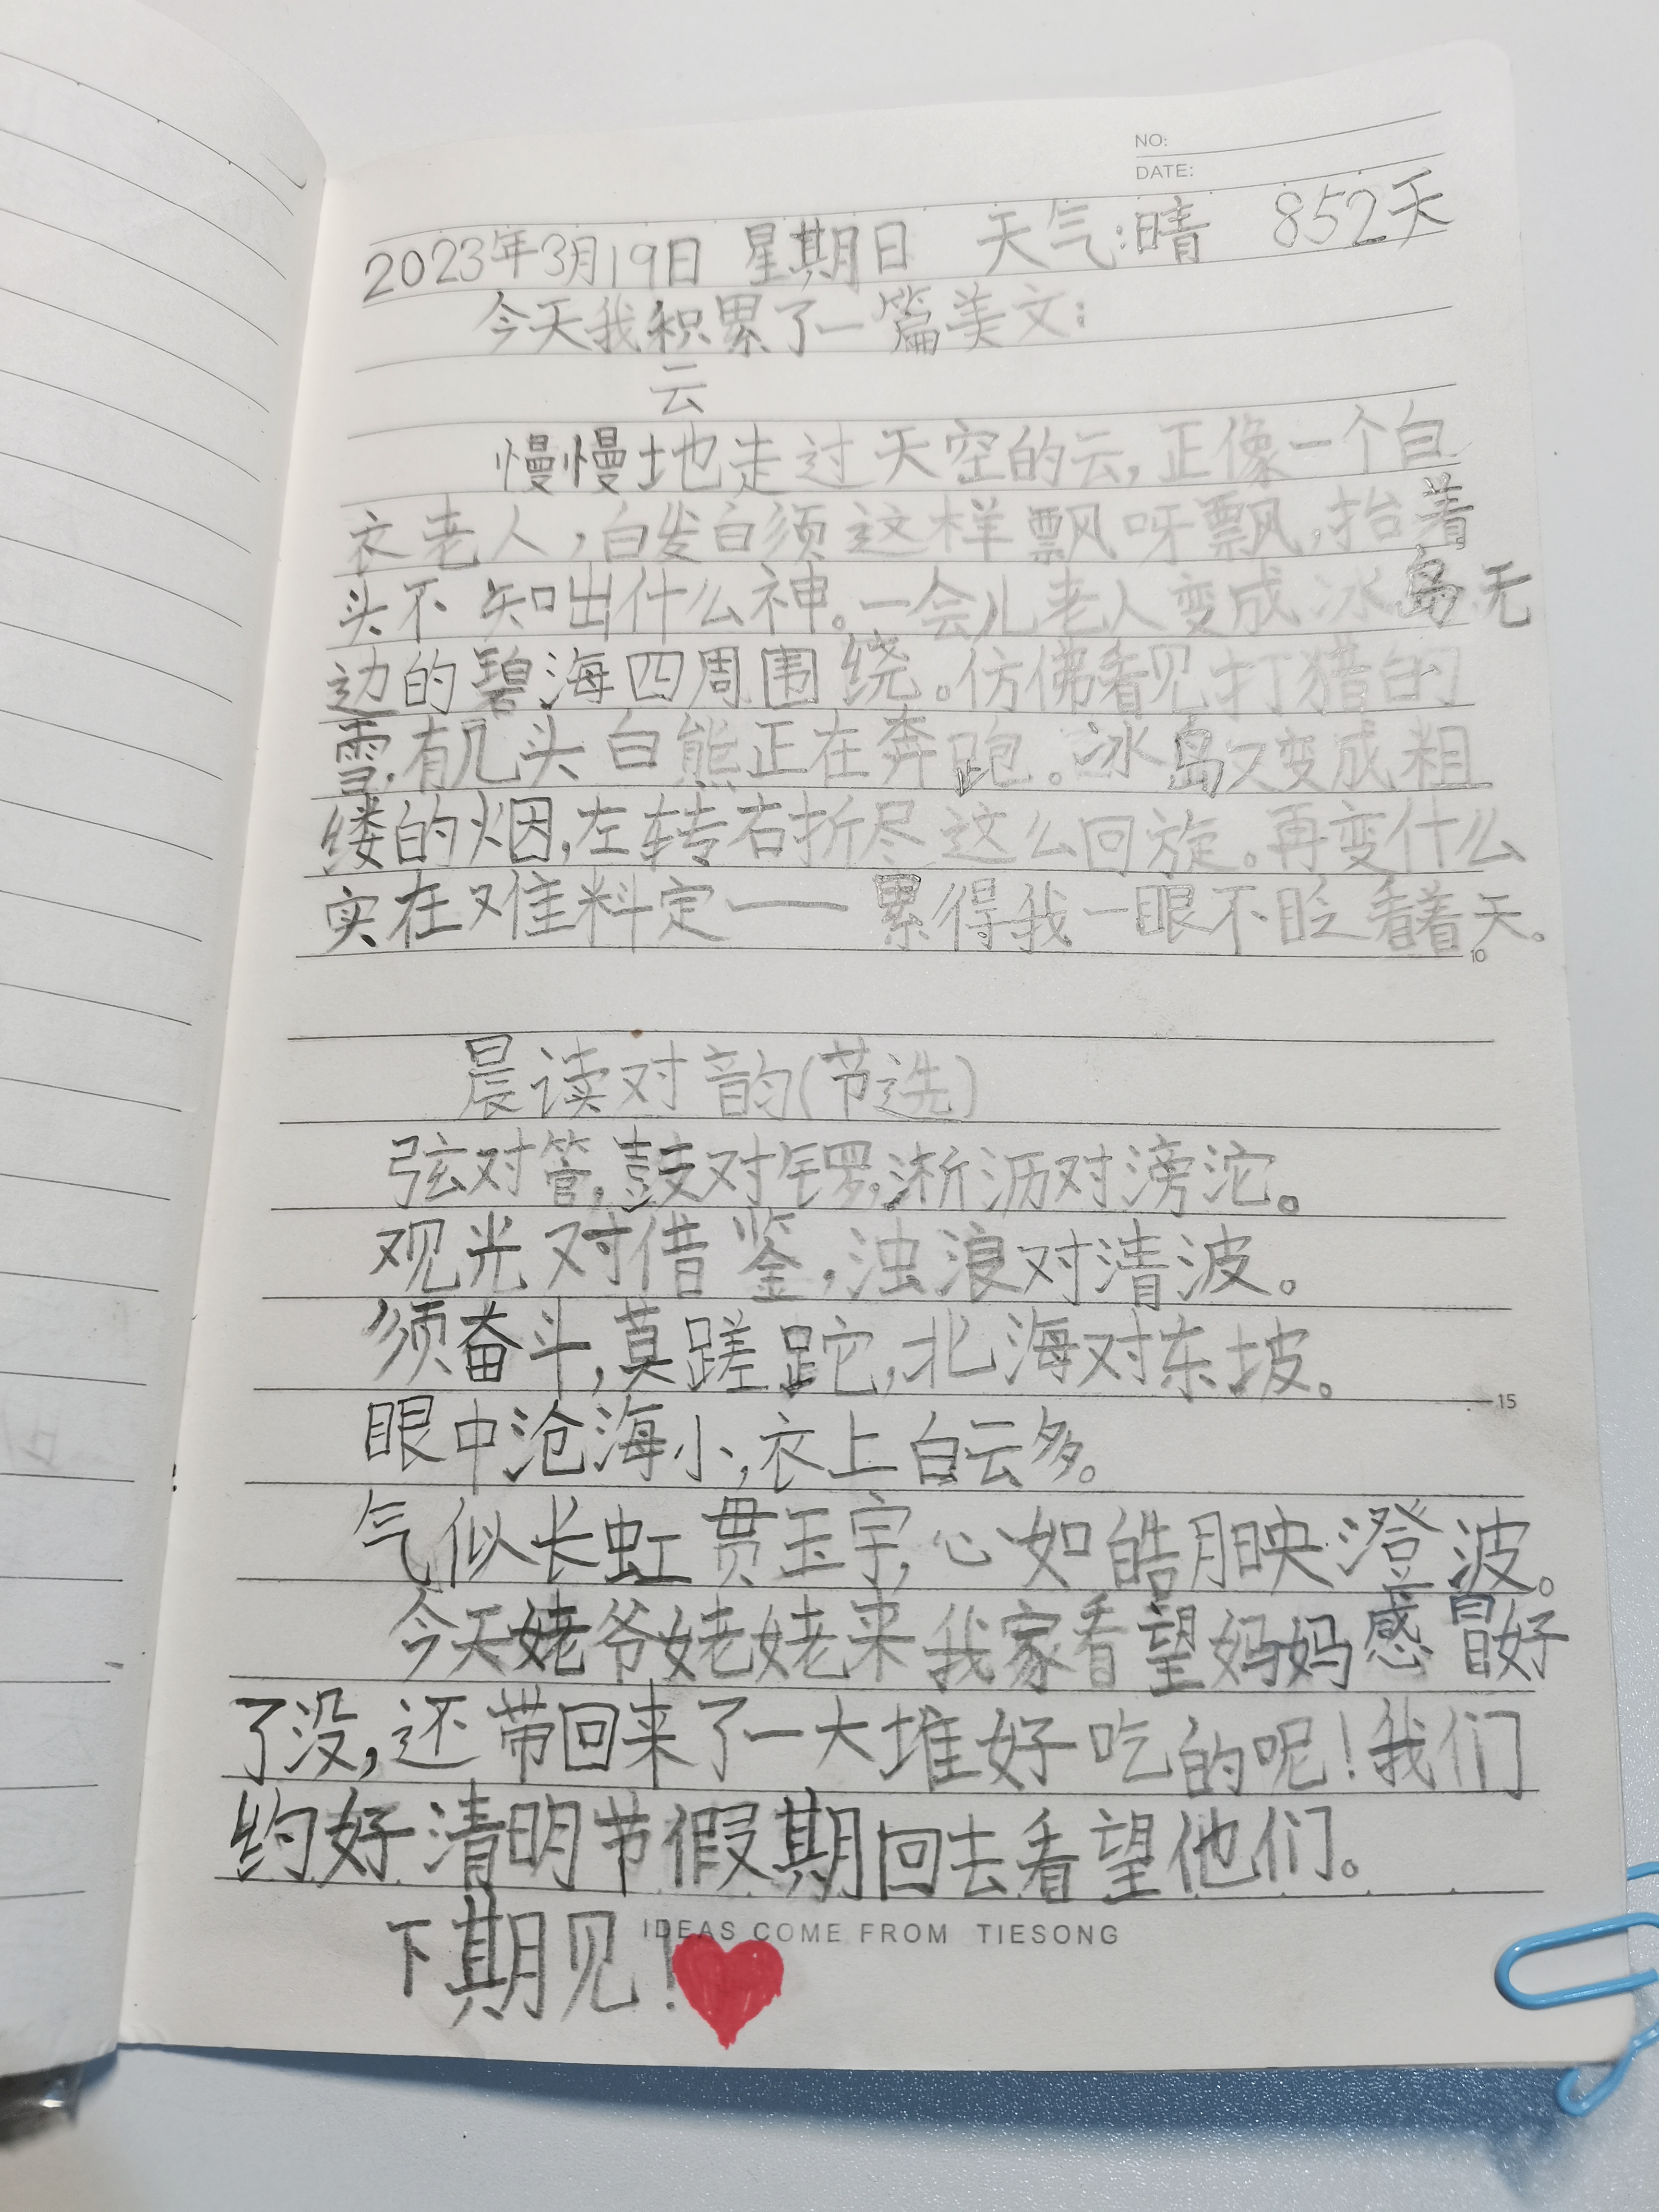 NO:
DATE:
2023年3月19日 星期日 天气:晴 852天
今天我积累了一篇美文:
云
慢慢地走过天空的云,正像一个白
衣老人,白发白须这样飘呀飘,抬着
头不知出什么神。一会儿老人变成冰岛无
边的碧海四周围绕。仿佛看见打猎的
雪,有几头白熊正在奔跑。冰岛又变成粗
缕的烟,左转右折尽这么回旋。再变什么
实在难料定——累得我一眼不眨看着天。
10
晨读对韵(节选)
弦对管,鼓对锣,淅沥对滂沱。
观光对借鉴,浊浪对清波。
须奋斗,莫蹉跎,北海对东坡。
15
眼中沧海小,衣上白云多。
气似长虹贯玉宇,心如皓月映澄波。
今天姥爷姥姥来我家看望妈妈感冒好
了没,还带回来了一大堆好吃的呢!我们
约好清明节假期回去看望他们。
IDEAS COME FROM TIESONG
下期见!